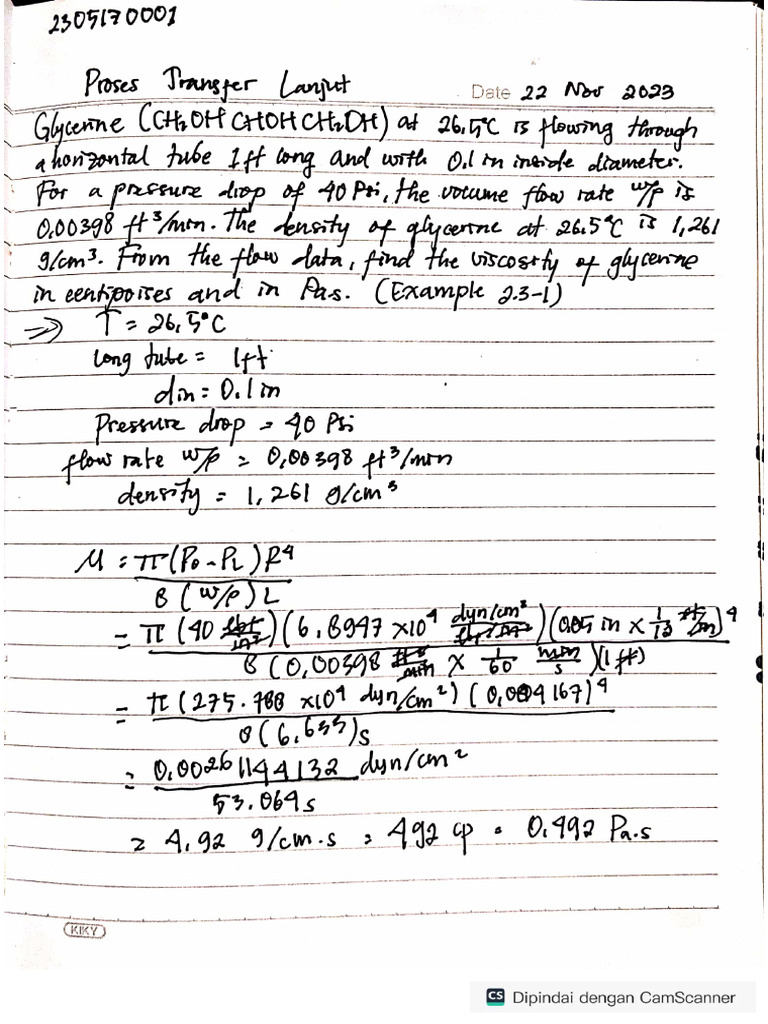 2305170001
Proses Transfer Lanjut
Date 22 Nov 2023
Glycerine (CH2OH CHOH CH2OH) at 26,5°C is flowing through
a horizontal tube 1ft long and with 0.1 in inside diameter.
For a pressure drop of 40 Psi, the volume flow rate w/ρ is
0,00398 ft³/min. The density of glycerine at 26.5°C is 1,261
g/cm³. From the flow data, find the viscosity of glycerine
in centipoises and in Pa.s. (Example 2.3-1)
=> T = 26,5°C
long tube = 1ft
din = 0.1 in
Pressure drop = 40 Psi
flow rate w/ρ = 0,00398 ft³/min
density = 1,261 g/cm³
μ = π(P0 - PL) R⁴
8 (w/ρ) L
= π (40 lbf/in²) (6,8947 x10⁴ dyn/cm²) (0.05 in x 1/12 ft/in)⁴
8 (0,00398 ft³/min x 1/60 min/s)(1 ft)
= π (275.788 x10⁴ dyn/cm²) (0,004167)⁴
8(6,633)s
= 0.00261144132 dyn/cm²
53.064s
= 4,92 g/cm.s = 492 cp = 0.492 Pa.s
KIKY
CS Dipindai dengan CamScanner